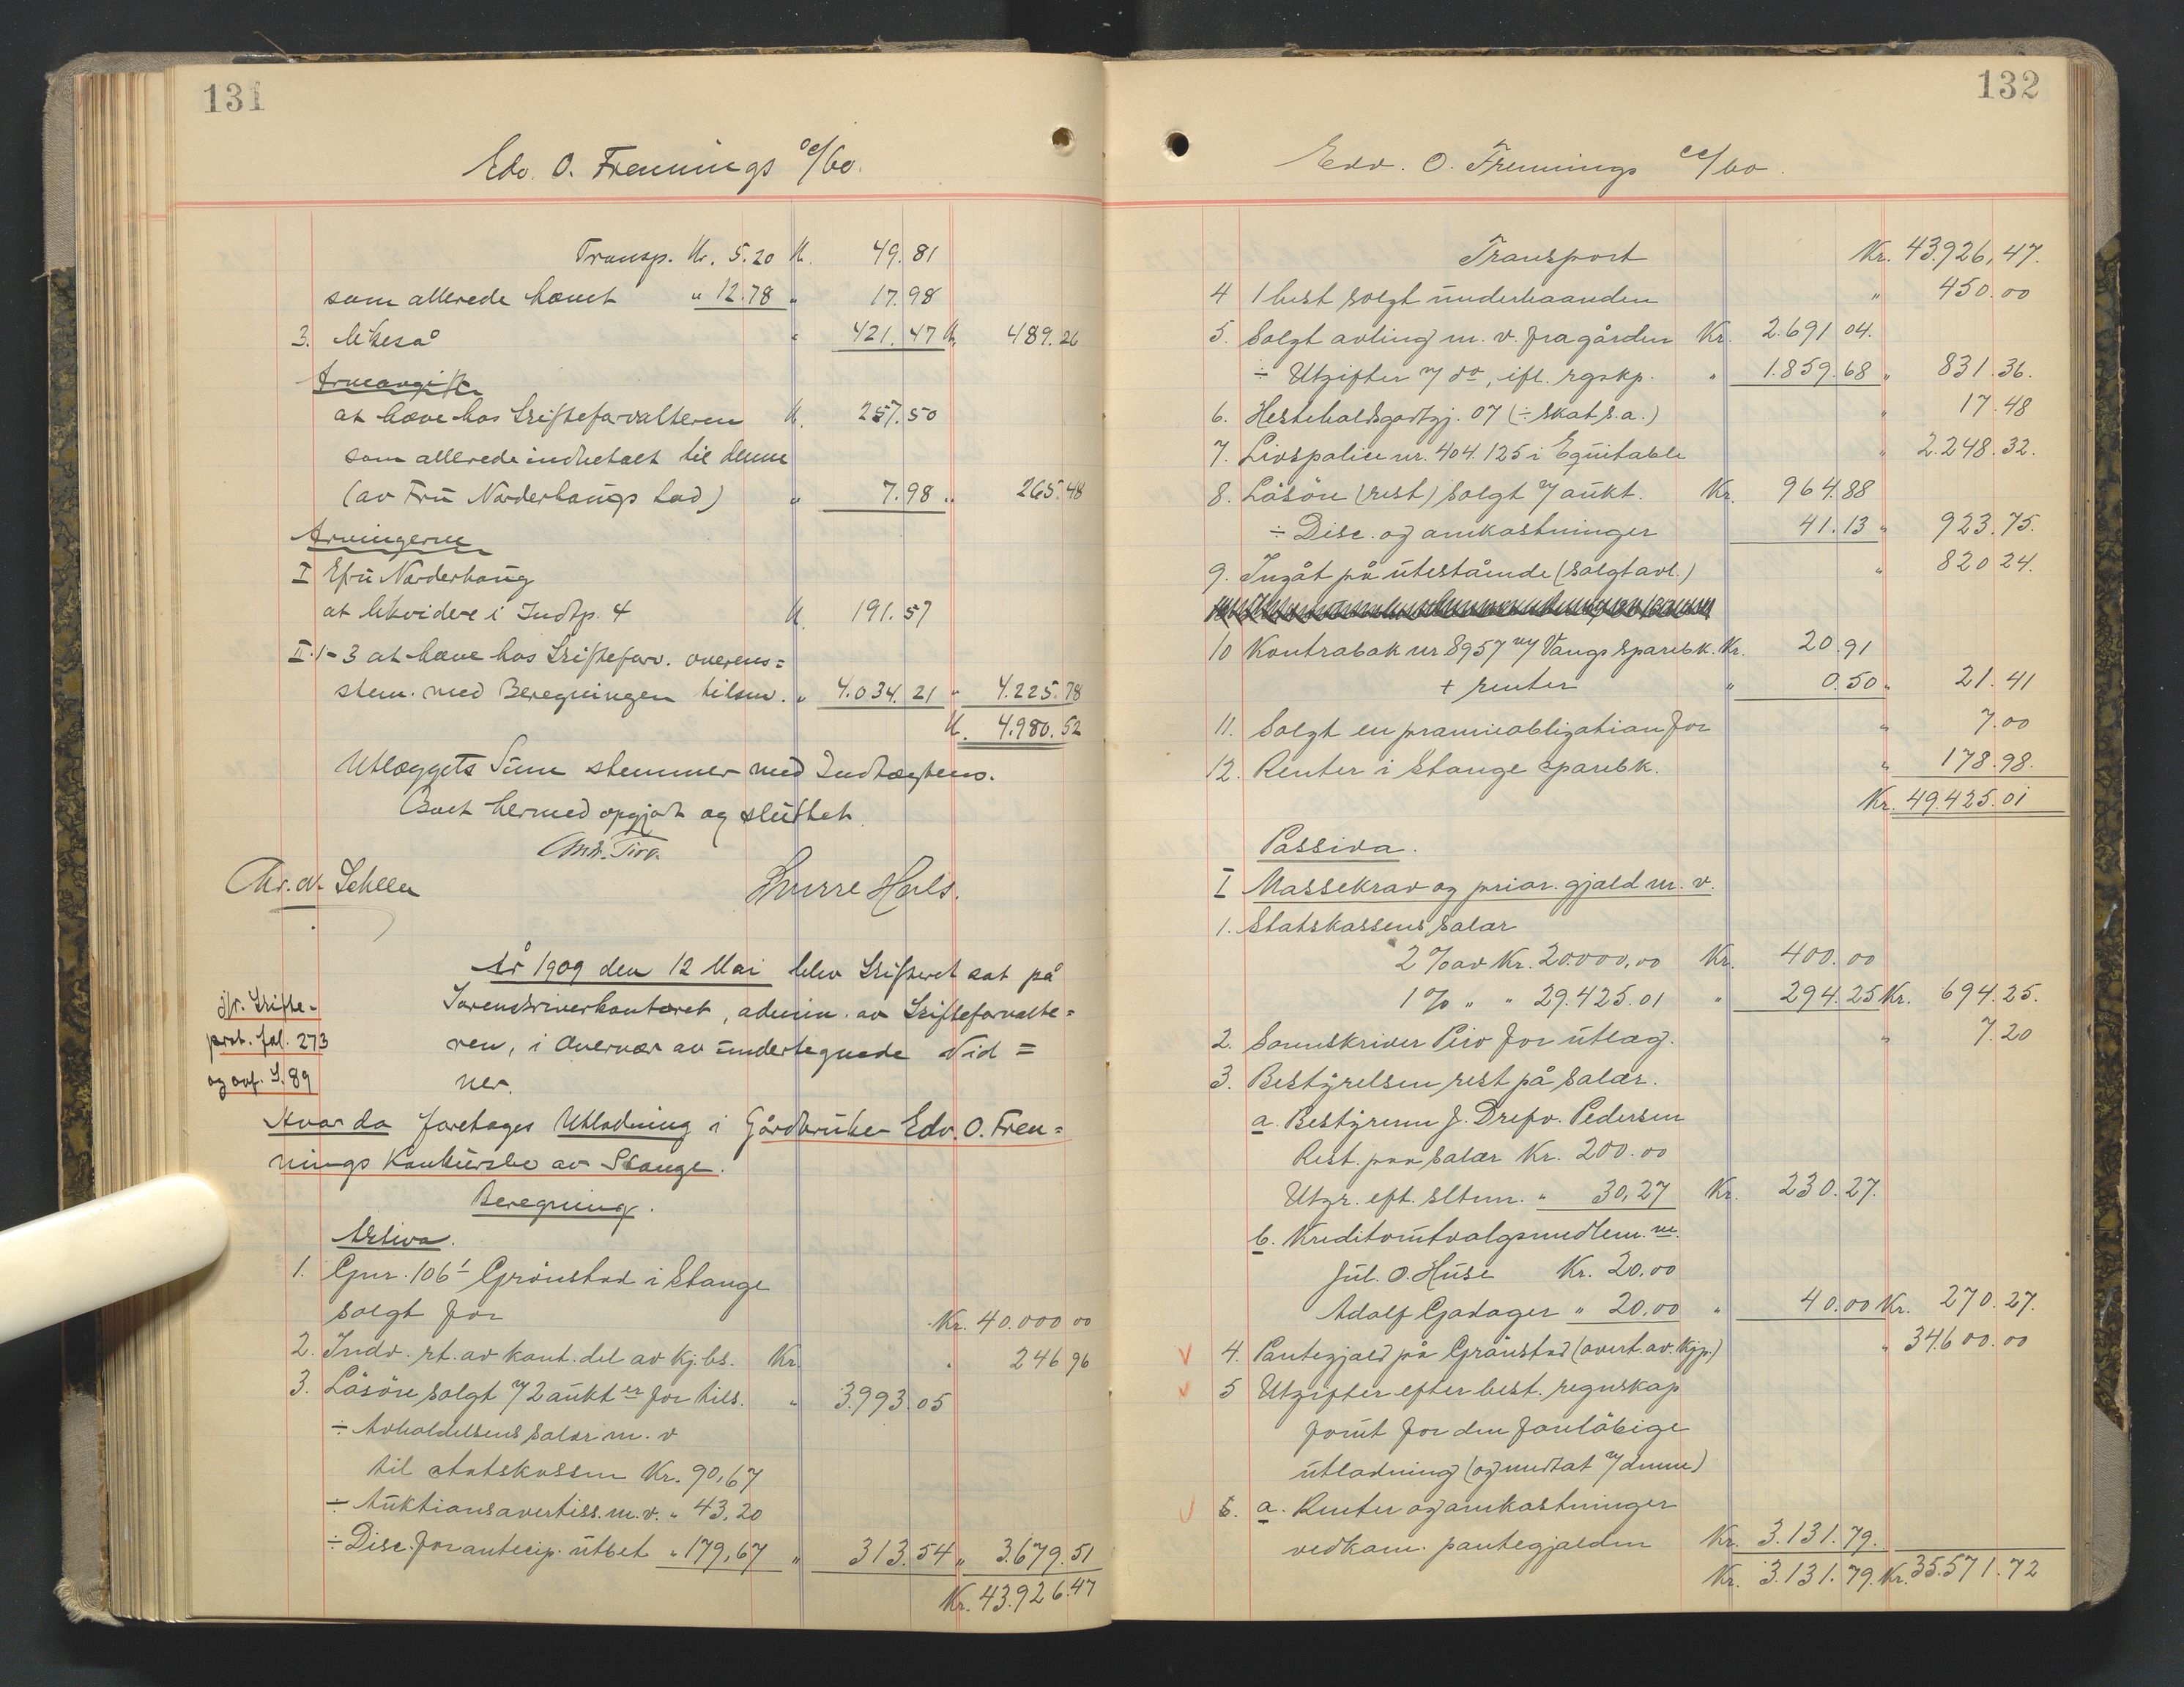 131
Edv. O. Frennings cc/bo.
Transp. Kr. 5.20 Kr. 49.81
som allerede hævet " 12.78 " 17.98
3. likeså " 421.47 Kr. 489.26
Arveavgift
at hæve hos Skifteforvalteren Kr. 257.50
som allerede indbetalt til denne
(av Fru Norderhaugs lod) " 7.98 " 265.48
Arvingerne
I Fru Norderhaug
at likvidere i Indtp. 4 Kr. 191.57
II. 1-3 at hæve hos Skifteforv. overens=
stem. med Beregningen tilsm. " 4.034.21 " 4.225.78
Kr. 4.980.52
Utlæggets Sum stemmer med Indtægtens.
Boet hermed opgjort og sluttet
Chr. d. Scheen
Sverre Hals.
År 1909 den 12 Mai blev Skifteret sat på
Sorenskriverkontoret, admin. av Skifteforvalte=
ren, i Overvær av undertegnede Vid=
ner.
jfr. Skifte-
prot. fol. 273
og avf. S. 89
Hvor da foretages Utlodning i Gårdbruker Edv. O. Fren=
nings Konkursbo av Stange.
Beregning.
Aktiva.
1. Gnr. 106¹ Grönstad i Stange
solgt for Kr. 40.000 00
2. Indv. rt. av kont. del av Kj.bs. Kr. " 246 96
3. Lösöre solgt v/ 2 aukt er for tils. " 3.993.05
÷ Avholdelsens salær m. v
til statskassen Kr. 90,67
÷ Auktionsavertiss. m. v. " 43,20
÷ Disc. for antecip. utbet " 179,67 " 313.54 " 3.679.51
Kr. 43.926.47
132
Edv. O. Frennings cc/bo.
Transport Kr. 43.926,47.
4 1 hest solgt underhaanden " 450.00
5. Solgt avling m. v. fra gården Kr. 2.691 04.
÷ Utgifter v/ do, ifl. rgskp. " 1.859.68 " 831.36.
6. Hesteholdsgodtgj. 07 (÷ skat s.a.) " 17.48
7. Livspolice nr. 404.125 i Equitable " 2.248.32.
8. Lösöre (rest) solgt v/ aukt. Kr. 964.88
÷ Disc. og omkostninger 41.13 " 923.75.
9. Ingåt på utestående (solgt avl.) " 820 24.
10 Kontrabok nr 8957 m/ Vangs sparebk. Kr. 20.91
+ renter " 0.50 " 21.41
11. Solgt en præmieobligation for " 7.00
12. Renter i Stange sparebk. " 178.98.
Kr. 49.425.01
Passiva.
I Massekrav og prior. gjæld m. v.
1. Statskassens salær
2 % av Kr. 20.000,00 Kr. 400.00
1 % " " 29.425.01 " 294.25 Kr. 694.25.
2. Sorenskriver Piro for utlæg. " 7.20
3. Bestyrelsen rest på salær.
a. Bestyreren J. Drefv. Pedersen
Rest. paa salær Kr. 200.00
Utgr. eft. sltnn. " 30,27 Kr. 230.27.
b. Kreditorutvalgsmedlem. ne.
Jul. O. Huse Kr. 20.00
Adolf Gadager " 20.00 " 40.00 Kr. 270.27.
4. Pantegjæld på Grönstad (overt. av. Kjp.) " 34.600.00
5 Utgifter efter best. regnskap
forut for den foreløbige
utlodning (og medtat v/ denne)
6. a. Renter og omkostninger
vedkom. pantegjælden Kr. 3.131.79.
Kr. 3.131.79. Kr. 35.571.72